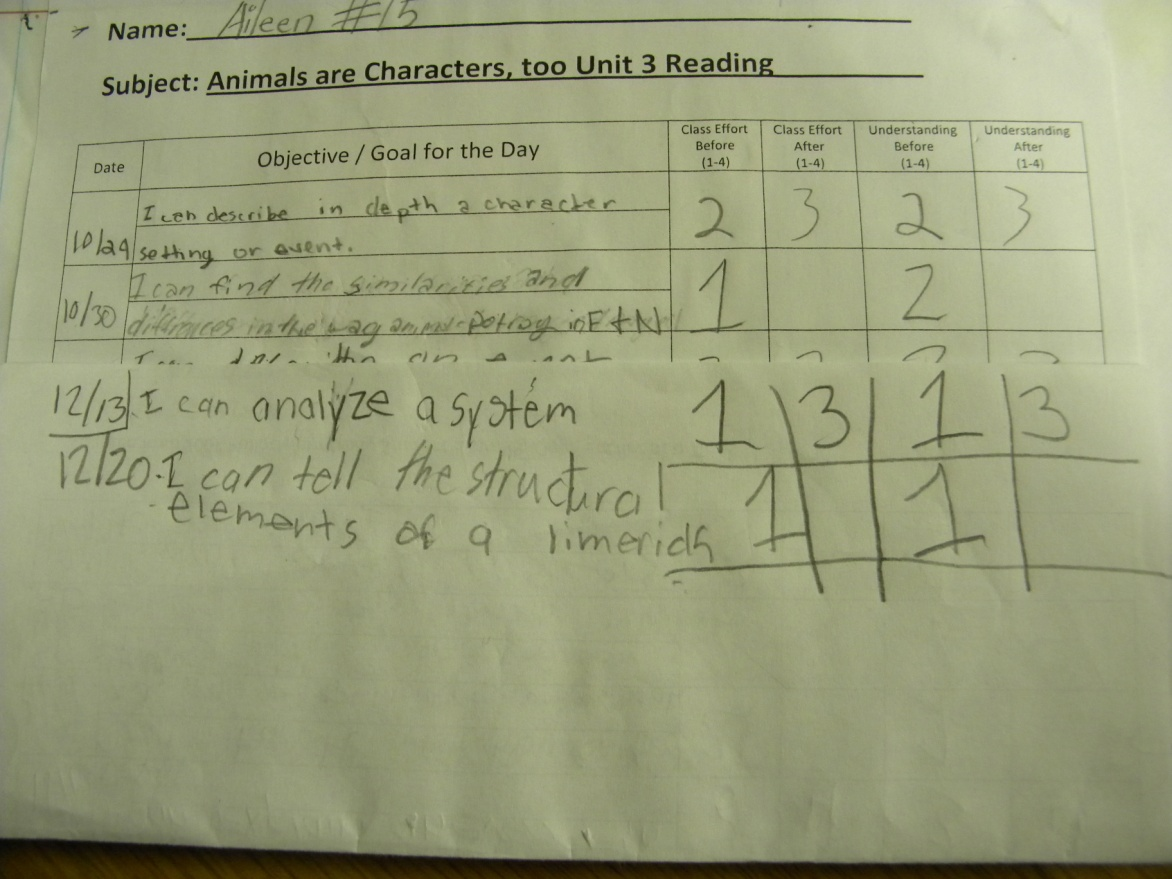 Name: Aileen #15
Subject: Animals are Characters, too Unit 3 Reading
Date Objective / Goal for the Day Class Effort Before (1-4) Class Effort After (1-4) Understanding Before (1-4) Understanding After (1-4)
10/29 I can describe in depth a character 2 3 2 3
setting or event.
10/30 I can find the similarities and 1 2
differences in the way animals in F + N
12/13 I can analyze a system 1 3 1 3
12/20 I can tell the structural 1 1
elements of a limerick